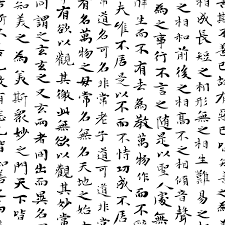 相成長短之相形無之相生難易之相
之相和前後之相高下之相傾音聲
為之事行不言之隨是以聖人處無
生而不有為萬物作而不
夫唯不居是以不不恃功成不居
名可名非常老子道可道非常
有名萬物之母常名無名天地之始
有欲以觀其徼此無欲以觀其妙常
謂之玄玄之又玄兩者同出而異名同
知美之為美斯衆妙之門天下皆